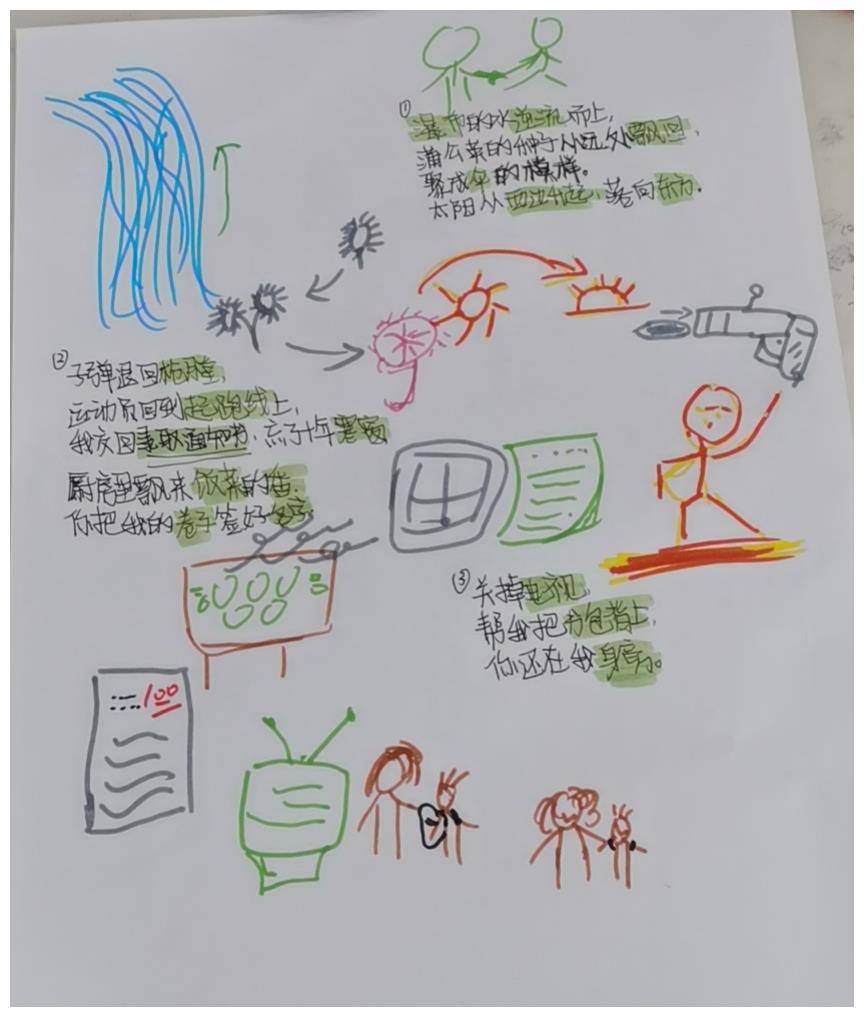 ①
瀑布的水逆流而上,
蒲公英的种子从远处飘回,
聚成伞的模样。
太阳从西边升起,落向东方.
②
子弹退回枪膛,
运动员回到起跑线上,
我交回录取通知书,忘了十年寒窗
厨房里飘来饭菜的香.
你把我的卷子签好名字
③
关掉电视,
帮我把书包背上,
你还在我身旁。
100